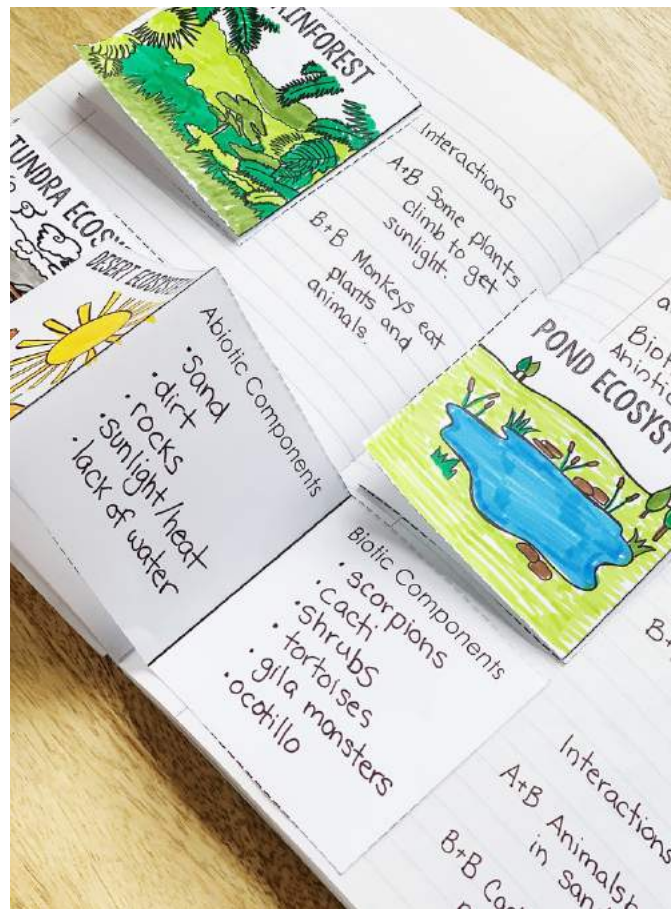 RAINFOREST
Interactions
A+B Some plants
climb to get
sunlight.
B+B Monkeys eat
plants and
animals.
TUNDRA
DESERT ECOSYSTEM
Abiotic Components
• sand
• dirt
• rocks
• sunlight/heat
• lack of water
Biotic Components
• scorpions
• cacti
• shrubs
• tortoises
• gila monsters
• ocotillo
POND
Interactions
A+B
in
B+B